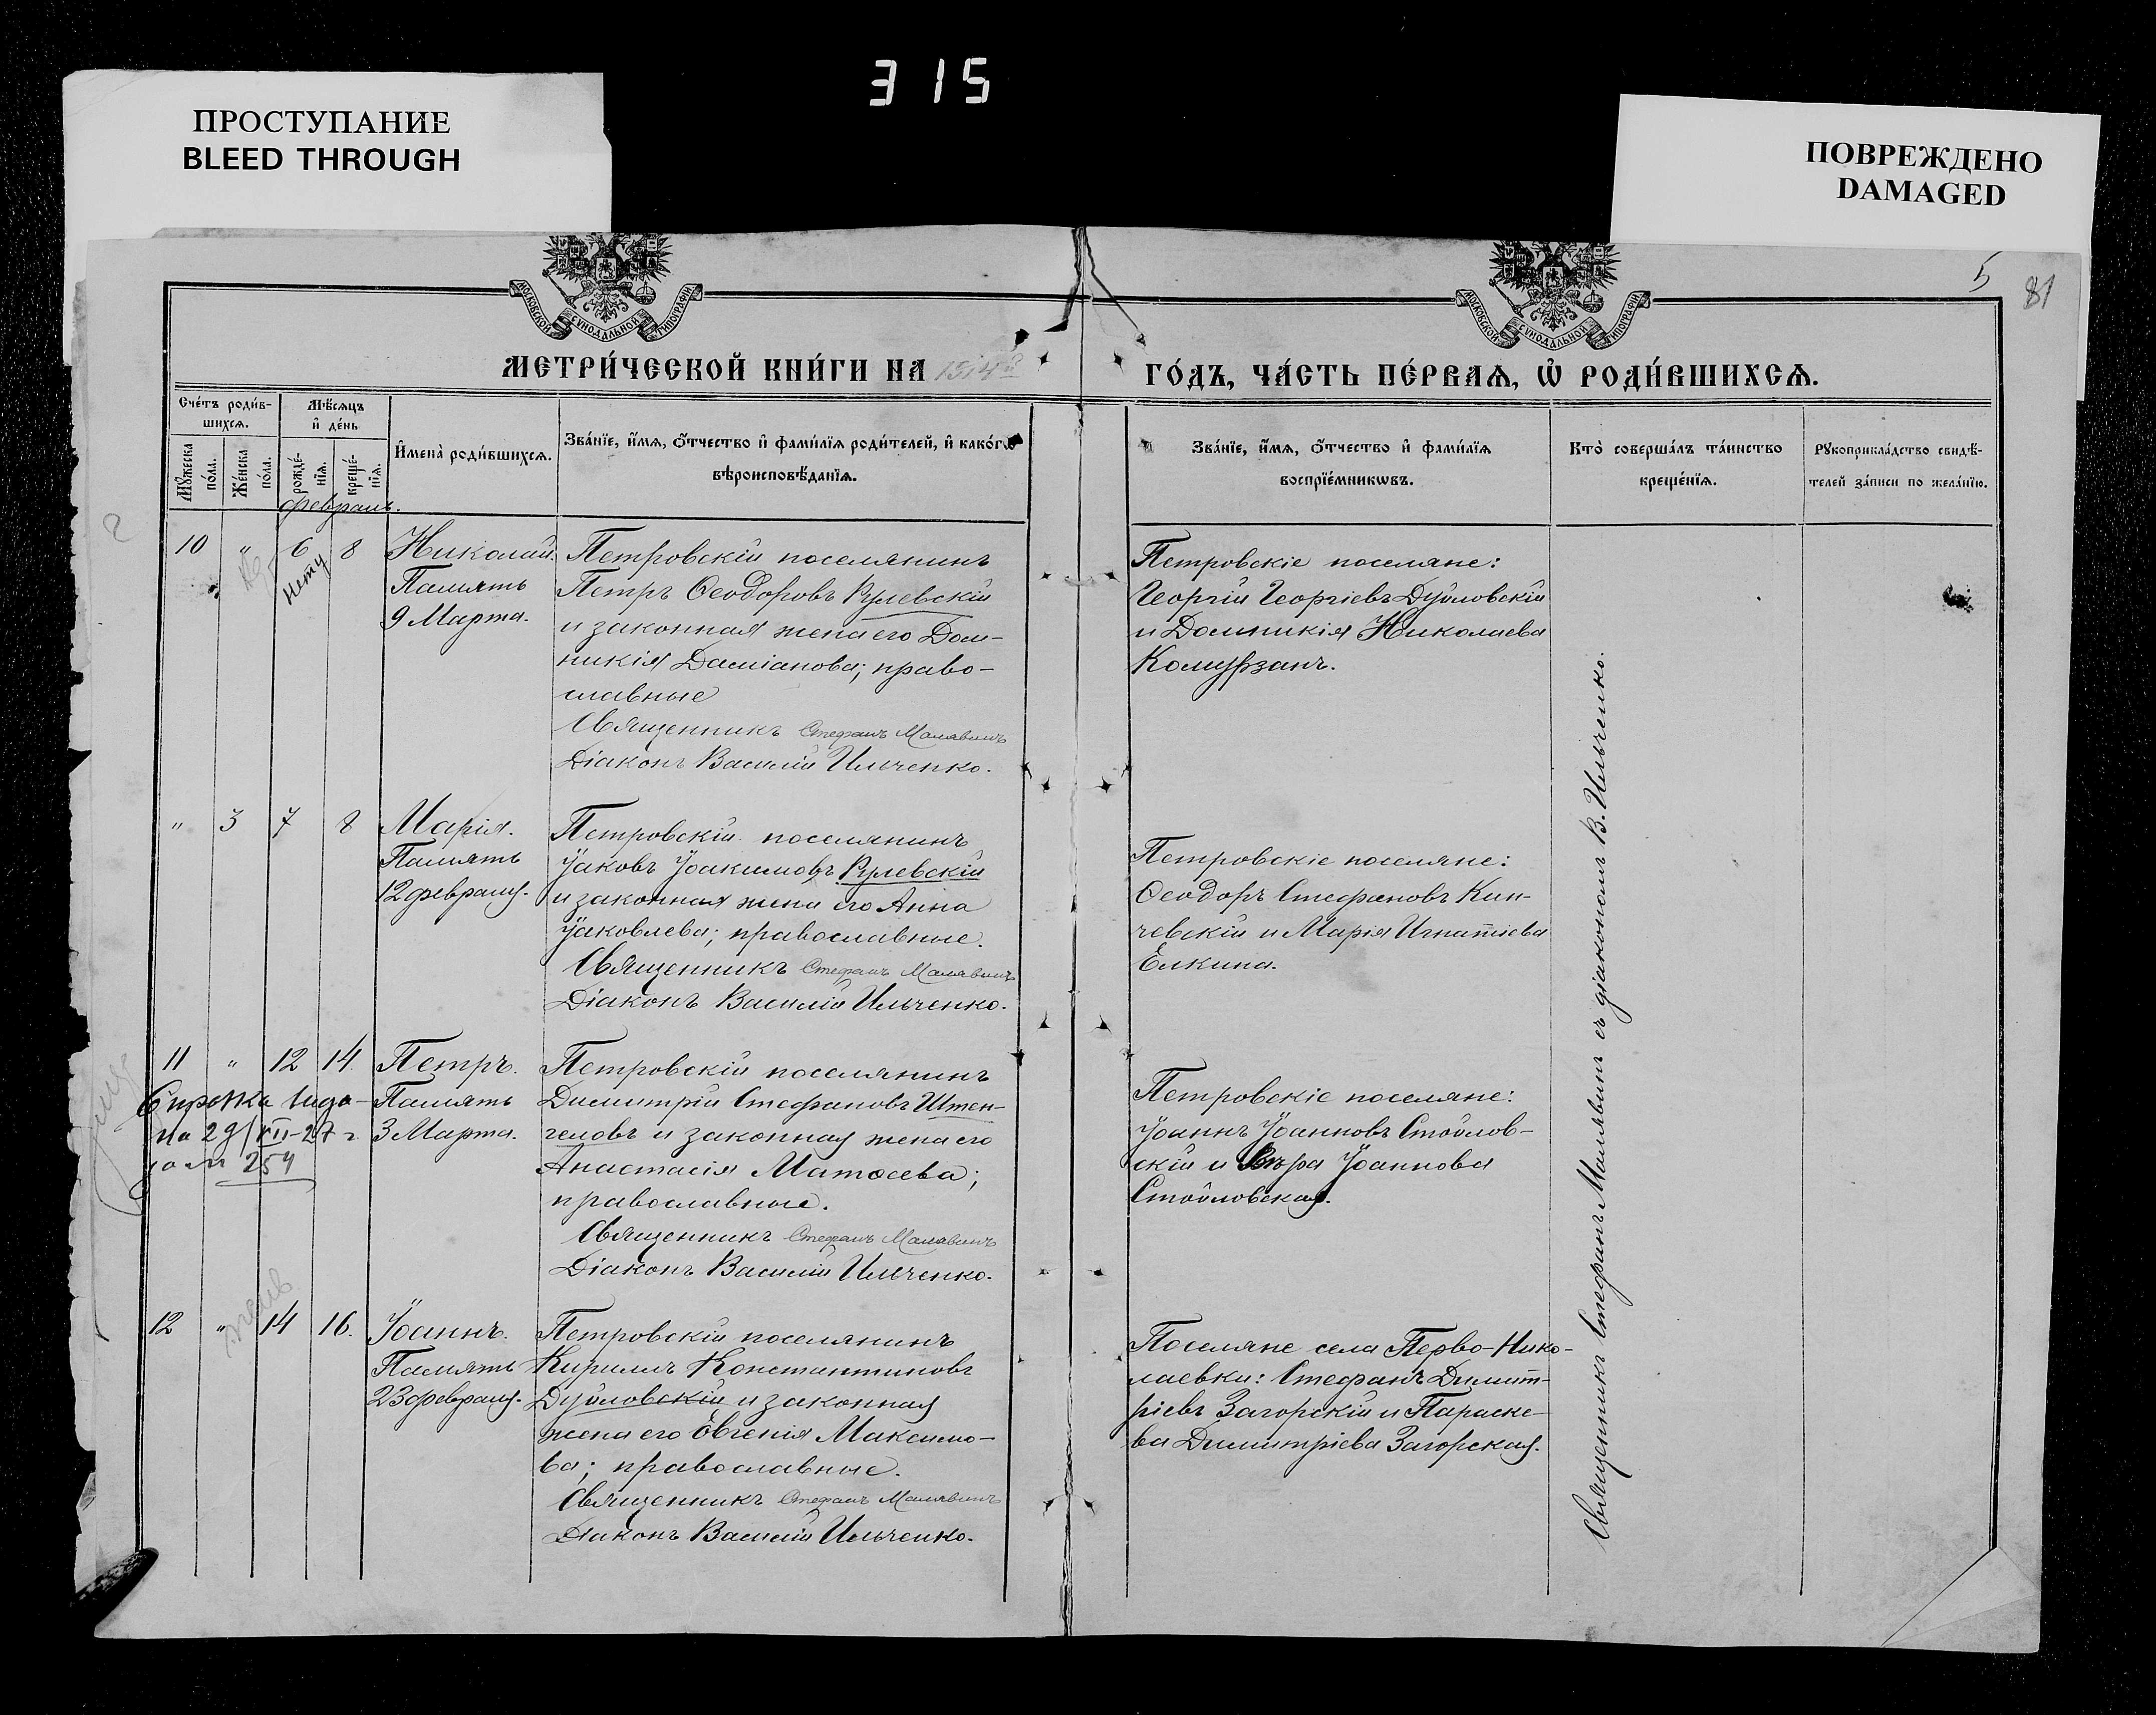 315
ПРОСТУПАНИЕ
BLEED THROUGH
ПОВРЕЖДЕНО
DAMAGED
5
81
МОСКОВСКОЙ СѴНОДАЛЬНОЙ ТИПОГРАФІИ
МОСКОВСКОЙ СѴНОДАЛЬНОЙ ТИПОГРАФІИ
МЕТРИ́ЧЕСКОЙ КНИ́ГИ НА 1914й
ГО́ДЪ, ЧА́СТЬ ПЕ́РВАѦ, Ѡ҆ РОДИ́ВШИХСѦ.
Сче́тъ роди́в-
шихсѧ.
Мѣ́сѧцъ
и҆ де́нь
Мꙋ́жеска
по́ла.
Же́нска
по́ла.
рожде́-
нїѧ.
креще́-
нїѧ.
И҆мена̀ роди́вшихсѧ.
Зва́нїе, и҆́мѧ, ѻ҆́тчество и҆ фами́лїѧ роди́телей, и҆ како́гѡ
вѣроисповѣ́данїѧ.
Зва́нїе, и҆́мѧ, ѻ҆́тчество и҆ фами́лїѧ
воспрїе́мникѡвъ.
Кто̀ соверша́лъ та́инство
креще́нїѧ.
Рꙋкоприкла́дство свидѣ́-
телей за́писи по жела́нїю.
Февраль.
10 " 6 8 Николай.
нету
Память
9 Марта.
Петровскій поселянинъ
Петръ Ѳеодоровъ Рулевскій
и законная жена его Дом-
никія Даміанова; право-
славные
Священникъ Стефанъ Малявинъ
Діаконъ Василій Ильченко.
Петровскіе поселяне:
Георгій Георгіевъ Дуйловскій
и Домникія Николаева
Комурзанъ.
" 3 7 8 Марія.
Память
12 февраля.
Петровскій поселянинъ
Іаковъ Іоакимовъ Рулевскій
и законная жена его Анна
Іаковлева; православные.
Священникъ Стефанъ Малявинъ
Діаконъ Василій Ильченко.
Петровскіе поселяне:
Ѳеодоръ Стефановъ Кин-
чевскій и Марія Игнатіева
Елкина.
11 " 12 14. Петръ.
Память
3 Марта.
Справка выда-
на 29/XII-27 г.
за № 254
Петровскій поселянинъ
Димитрій Стефановъ Штен-
геловъ и законная жена его
Анастасія Матѳеева;
православные.
Священникъ Стефанъ Малявинъ
Діаконъ Василій Ильченко.
Петровскіе поселяне:
Іоаннъ Іоанновъ Стойлов-
скій и Вѣра Іоаннова
Стойловская.
12 " 14 16. Іоаннъ.
Память
23 февраля.
Петровскій поселянинъ
Кириллъ Константиновъ
Дуйловскій и законная
жена его Евгенія Максимо-
ва; православные.
Священникъ Стефанъ Малявинъ
Діаконъ Василій Ильченко.
Поселяне села Перво-Нико-
лаевки: Стефанъ Димит-
ріевъ Загорскій и Параске-
ва Димитріева Загорская.
Священникъ Стефанъ Малявинъ съ діакономъ В. Ильченко.